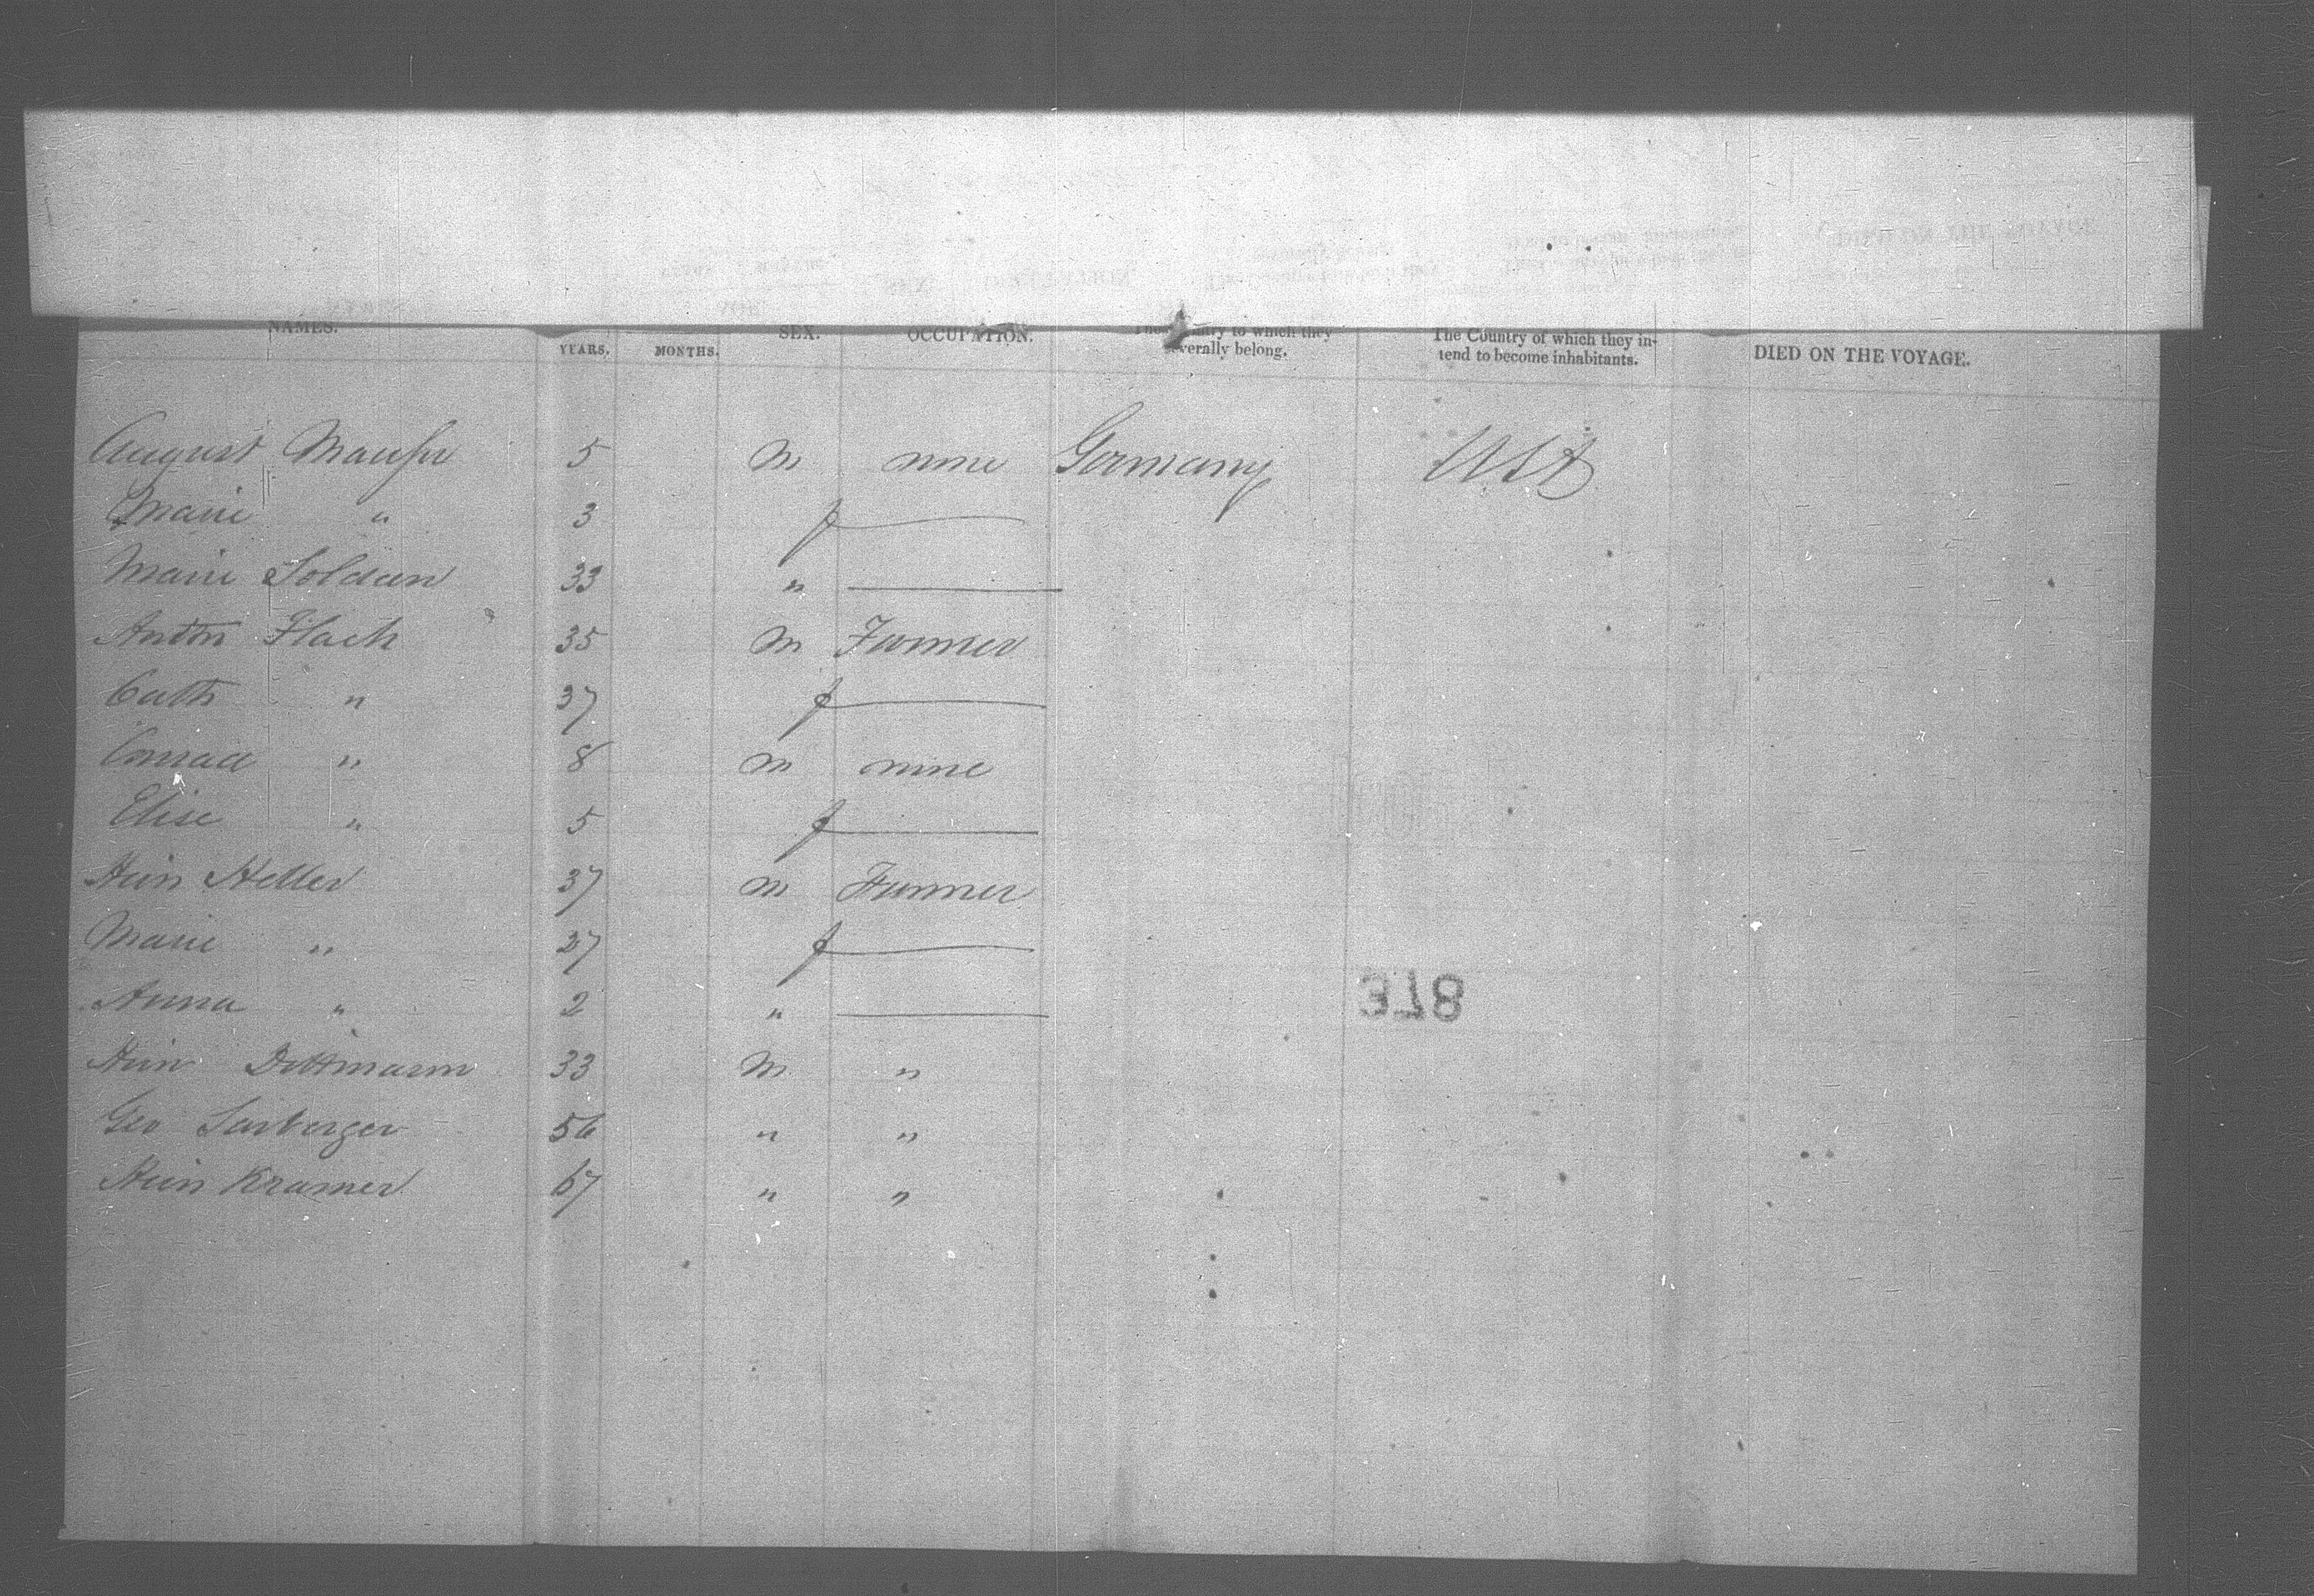 NAMES. YEARS. MONTHS. SEX. OCCUPATION. to which they severally belong. The Country of which they intend to become inhabitants. DIED ON THE VOYAGE.
August 5 m none Germany USA
Marie " 3 f —
Marie Soldan 33 " —
Anton Flach 35 m Farmer
Cath " 37 f —
Conrad " 8 m none
Elise " 5 f —
Hein Heller 37 m Farmer
Marie " 27 f —
Anna " 2 " —
378
Hein Dittmann 33 m "
Geo 56 " "
Hein Kramer 67 " "